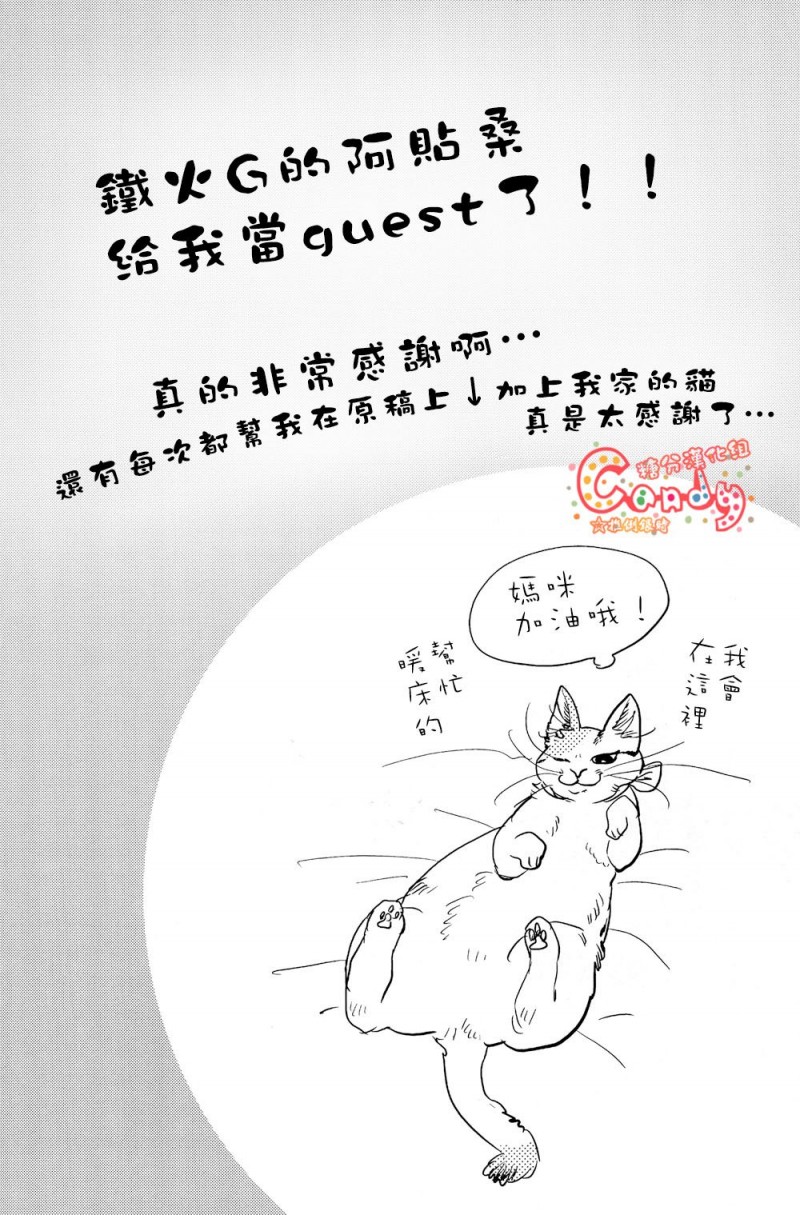 鐵火G的阿貼桑
給我當guest了！！
真的非常感謝啊…
還有每次都幫我在原稿上↓加上我家的貓
真是太感謝了…
糖分漢化組
Candy
☆拉倒銀時
媽咪
加油哦！
我會
在這裡
幫忙
暖床
的